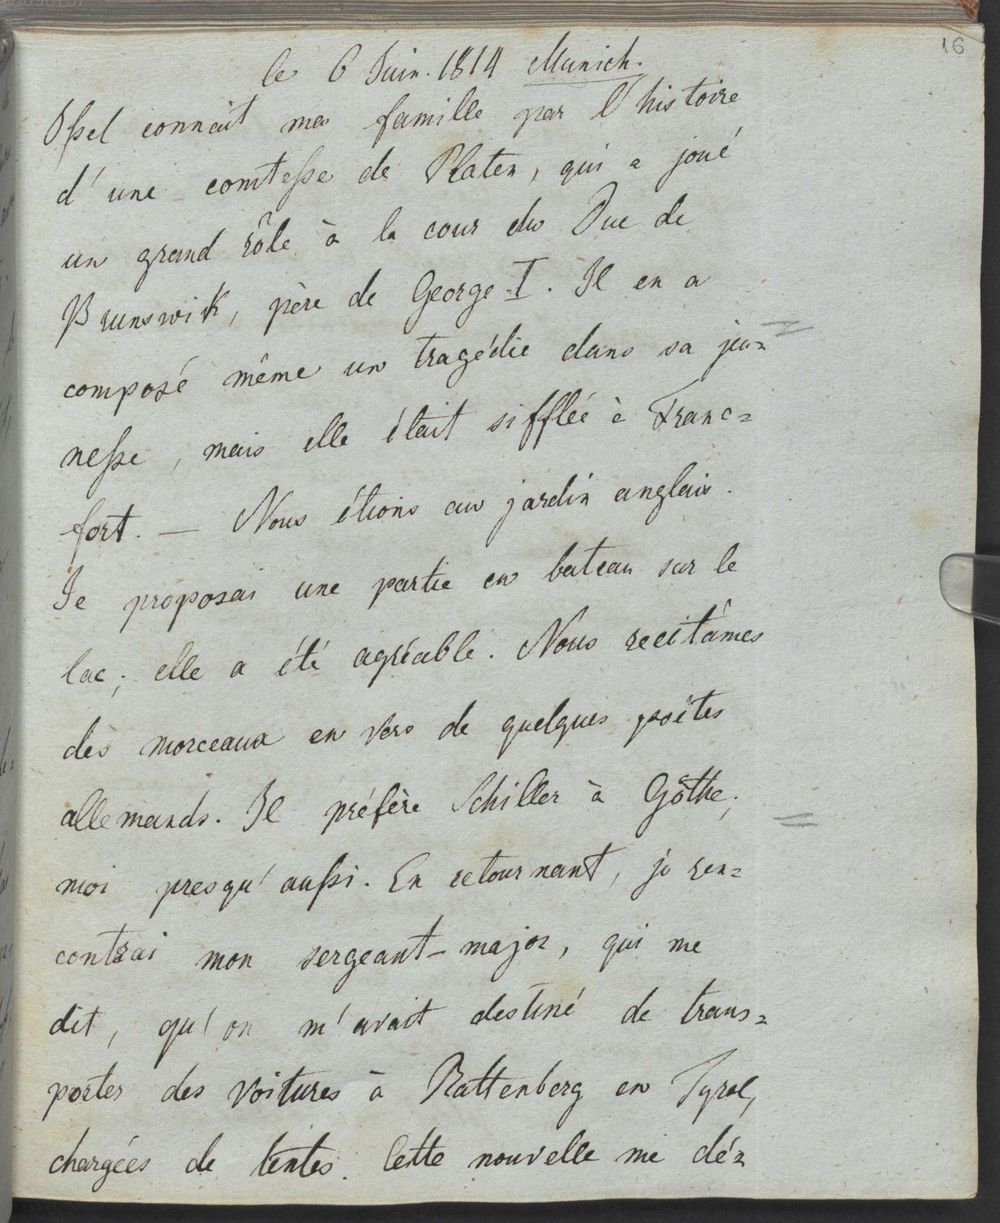 16
le 6 Juin. 1814 Munich.
Ossel connait ma famille par l'histoire
d'une comtesse de Platen, qui a joué
un grand rôle à la cour du Duc de
Brunswik, père de George I. Il en a
composé même un tragédie dans sa jeu=
nesse, mais elle était sifflée à Franc=
fort. — Nous étions au jardin anglais.
Je proposai une partie en bateau sur le
lac; elle a été agréable. Nous recitâmes
des morceaux en vers de quelques poëtes
allemands. Il préfère Schiller à Göthe;
moi presqu'aussi. En retournant, je ren=
contrai mon sergeant-major, qui me
dit, qu'on m'avait destiné de trans=
porter des voitures à Rattenberg en Tyrol,
chargées de tentes. Cette nouvelle me dé=